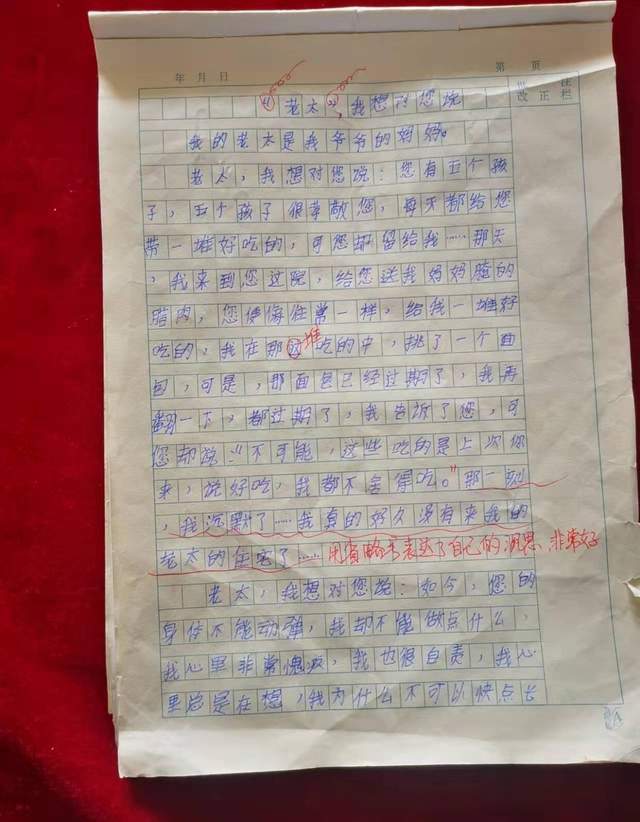 年 月 日 第 页
批 注
改 正 栏
老太，我想对您说
我的老太是我爷爷的妈妈。
老太，我想对您说：您有五个孩
子，五个孩子很孝敬您，每天都给您
带一堆好吃的，可您都留给我……那天
，我来到您过院，给您送我妈妈腌的
腊肉，您便像往常一样，给我一堆好
吃的，我在那堆吃的中，挑了一个面
包，可是，那面包已经过期了，我再
翻一下，都过期了，我告诉了您，可
您却说：“不可能，这些吃的是上次你
来，说好吃，我都不舍得吃。”那一刻
，我沉默了……我真的好久没有来我的
老太的住宅了……
用省略号表达了自己的沉思，非常好
老太，我想对您说：如今，您的
身体不能动弹，我却不能做点什么，
我心里非常愧疚，我也很自责，我心
里总是在想，我为什么不可以快点长